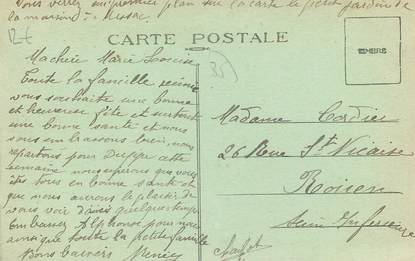 Vous verrez au premier plan sur la carte le petit jardin de
la maison
12f
CARTE POSTALE
TIMBRE
35
Ma chère Marie Louise
Toute la famille réunie
vous souhaite une bonne
et heureuse fête et surtout
une bonne santé et nous
vous embrassons bien, nous
repartons pour Dieppe cette
semaine nous espérons que vous
êtes tous en bonne santé et
que nous aurons le plaisir de
vous voir d'ici quelque temps
Embrassez Alphonse pour nous
ainsi que toute la petite famille
Bons baisers
Madame Cordier
26 Rue St Nicaise
Rouen
Seine Inférieure